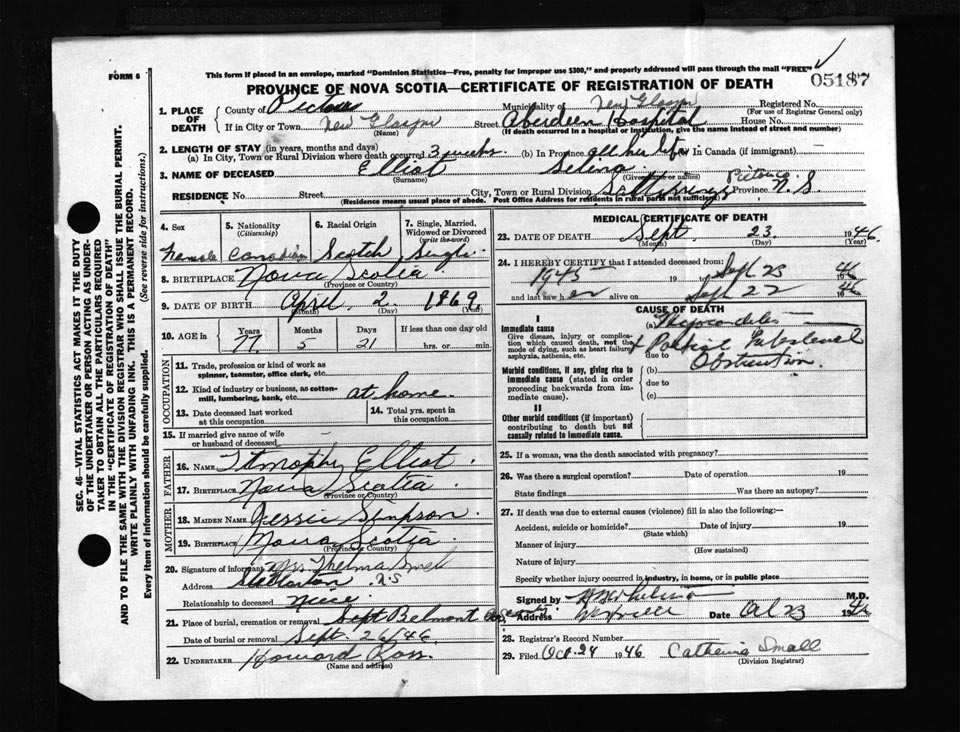 FORM 6
This form if placed in an envelope, marked "Dominion Statistics—Free, penalty for improper use $300," and properly addressed will pass through the mail "FREE"
05187
PROVINCE OF NOVA SCOTIA—CERTIFICATE OF REGISTRATION OF DEATH
1. PLACE OF DEATH
County of Pictou Municipality of New Glasgow Registered No.
(For use of Registrar General only)
If in City or Town New Glasgow Street Aberdeen Hospital House No.
(Name) (If death occurred in a hospital or institution, give the name instead of street and number)
2. LENGTH OF STAY (in years, months and days)
(a) In City, Town or Rural Division where death occurred 3 weeks. (b) In Province all her life In Canada (if immigrant)
3. NAME OF DECEASED Elliot Selina
(Surname) (Given name or names)
RESIDENCE No. Street City, Town or Rural Division Pictou Co. Province N.S.
(Residence means usual place of abode. Post Office Address for residents in rural parts not sufficient)
4. Sex 5. Nationality (Citizenship) 6. Racial Origin 7. Single, Married, Widowed or Divorced (write the word)
Female Canadian Scotch Single
8. BIRTHPLACE Nova Scotia
(Province or Country)
9. DATE OF BIRTH April 2. 1869
(Month) (Day) (Year)
10. AGE in Years Months Days If less than one day old
77 5 21 hrs. or min.
OCCUPATION
11. Trade, profession or kind of work as spinner, teamster, office clerk, etc.
12. Kind of industry or business, as cotton-mill, lumbering, bank, etc. at home.
13. Date deceased last worked at this occupation 14. Total yrs. spent in this occupation
15. If married give name of wife or husband of deceased –
FATHER
16. NAME Timothy Elliot.
17. BIRTHPLACE Nova Scotia.
(Province or Country)
MOTHER
18. MAIDEN NAME Jessie Simpson.
19. BIRTHPLACE Nova Scotia
(Province or Country)
20. Signature of informant Mrs Thelma
Address Stellarton N.S
Relationship to deceased Niece.
21. Place of burial, cremation or removal Belmont
Date of burial or removal Sept. 26/46.
22. UNDERTAKER Howard Ross.
(Name and address)
MEDICAL CERTIFICATE OF DEATH
23. DATE OF DEATH Sept. 23 1946.
(Month) (Day) (Year)
24. I HEREBY CERTIFY that I attended deceased from:
1945 19 to Sept 23 1946
and last saw her alive on Sept 22 1946
CAUSE OF DEATH
I
Immediate cause
Give disease, injury or complication which caused death, not the mode of dying, such as heart failure, asphyxia, asthenia, etc.
(a) Myocarditis
+ Partial Intestinal
due to Obstruction.
Morbid conditions, if any, giving rise to immediate cause (stated in order proceeding backwards from immediate cause).
(b)
due to
(c)
II
Other morbid conditions (if important) contributing to death but not causally related to immediate cause.
25. If a woman, was the death associated with pregnancy?
26. Was there a surgical operation? Date of operation 19
State findings Was there an autopsy?
27. If death was due to external causes (violence) fill in also the following:—
Accident, suicide or homicide? Date of injury 19
(State which)
Manner of injury
(How sustained)
Nature of injury
Specify whether injury occurred in industry, in home, or in public place
Signed by M.D.
Address Date Oct 23 1946
28. Registrar's Record Number
29. Filed Oct. 24 1946 Catherine Small
(Division Registrar)
SEC. 46—VITAL STATISTICS ACT MAKES IT THE DUTY
OF THE UNDERTAKER OR PERSON ACTING AS UNDER-
TAKER TO OBTAIN ALL THE PARTICULARS REQUIRED
IN THE "CERTIFICATE OF REGISTRATION OF DEATH"
AND TO FILE THE SAME WITH THE DIVISION REGISTRAR WHO SHALL ISSUE THE BURIAL PERMIT.
WRITE PLAINLY WITH UNFADING INK. THIS IS A PERMANENT RECORD.
Every item of information should be carefully supplied. (See reverse side for instructions.)